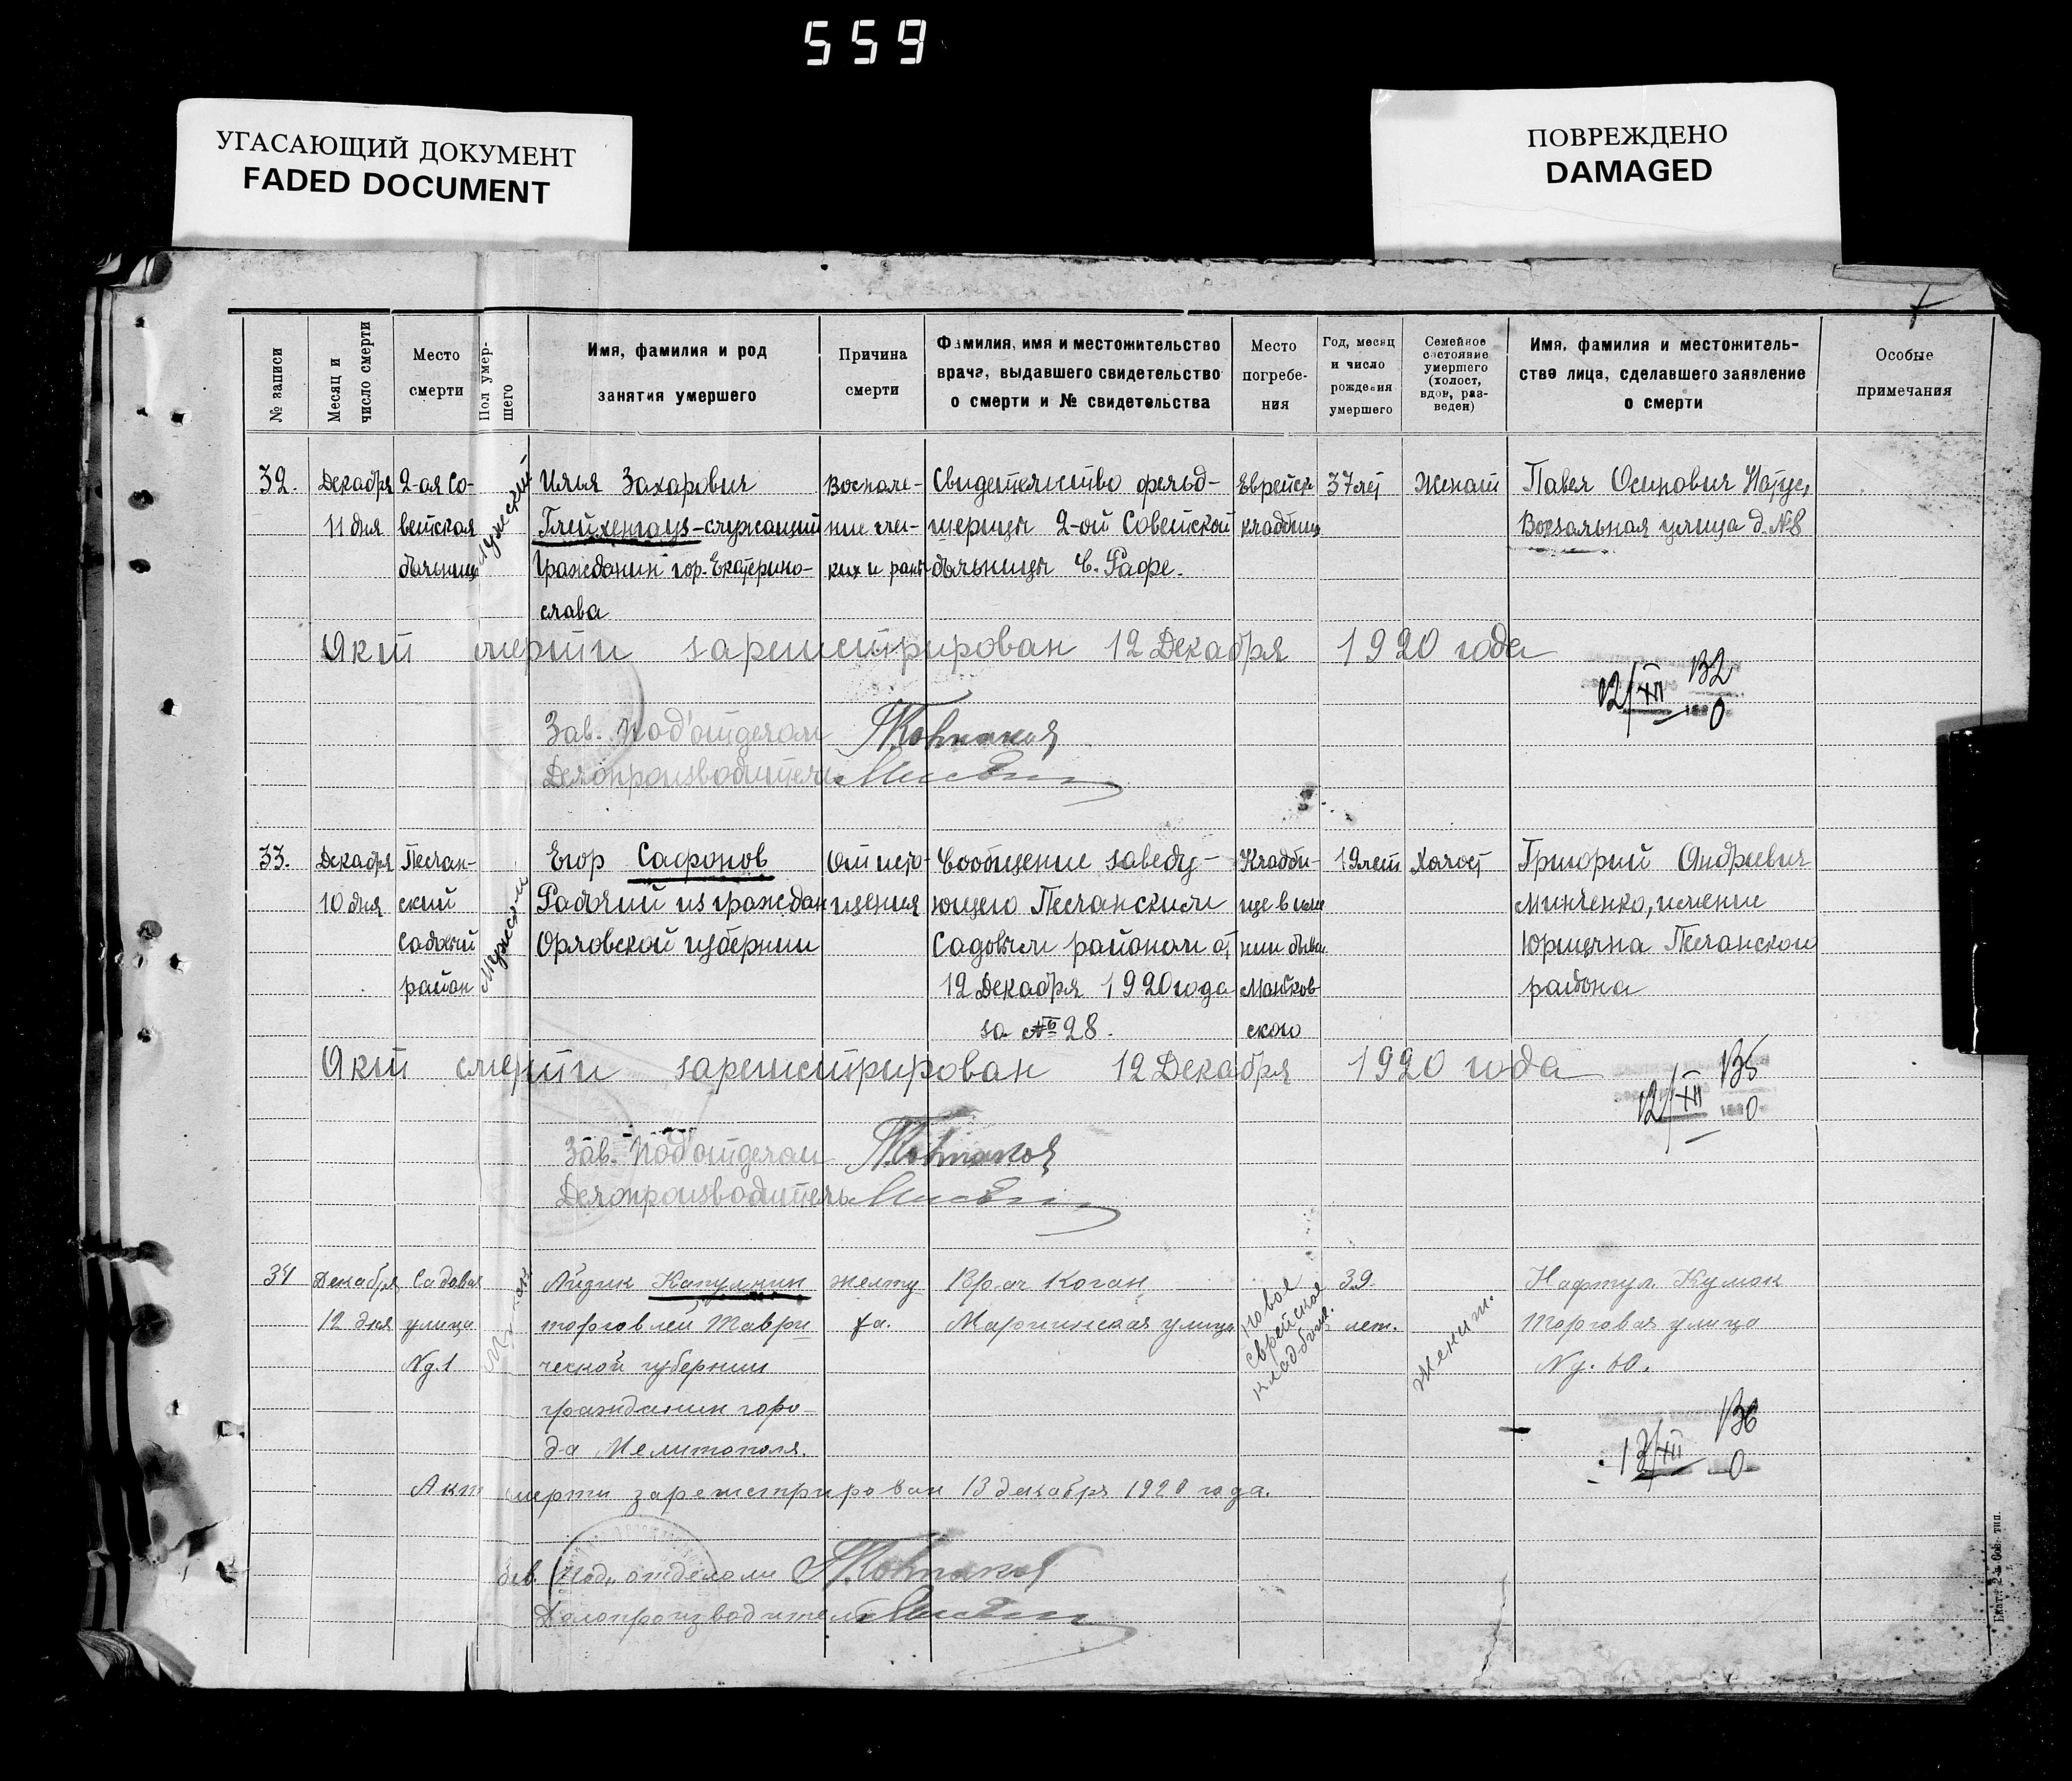 559
УГАСАЮЩИЙ ДОКУМЕНТ
FADED DOCUMENT
ПОВРЕЖДЕНО
DAMAGED
№ записи
Месяц и
число смерти
Место
смерти
Пол умер-
шего
Имя, фамилия и род
занятия умершего
Причина
смерти
Фамилия, имя и местожительство
врача, выдавшего свидетельство
о смерти и № свидетельства
Место
погребе-
ния
Год, месяц
и число
рождения
умершего
Семейное
состояние
умершего
(холост,
вдов, раз-
веден)
Имя, фамилия и местожитель-
ство лица, сделавшего заявление
о смерти
Особые
примечания
32.
Декабря
11 дня
2-ая Со-
вейская
больница
Мужеский
Илья Захарович
Глейхенгауз - служащий
Гражданин гор. Екатерино-
слава
Воспале-
ние лег-
ких и раны
Свидетельство фельд-
шерицы 2-ой Совейской
больницы С. Рафе.
Еврейск
кладбище
37 лет
Женат
Павел Осипович
Вокзальная улица д. №8
Акт смерти зарегистрирован 12 Декабря 1920 года
12/XII
Зав. Под'отделом
Делопроизводитель
33.
Декабря
10 дня
Песчан-
ский
Садовый
район
Мужеский
Егор Сафонов
Рабочий из граждан
Орловской губернии
От исто-
щения
Сообщение заведу-
ющего Песчанским
Садовым районом от
12 Декабря 1920 года
за № 28.
Кладби-
ще в име
нии бывш
ского
19 лет
Холост
Григорий Андреевич
Минченко, имение
Юрицына Песчанского
района
Акт смерти зарегистрирован 12 Декабря 1920 года
12/XII
Зав. Под'отделом
Делопроизводитель
34
Декабря
12 дня
Садовая
улица
№д.1
Айзик Капулкин
торговлей Таври
ческой губернии
гражданин горо-
да Мелитополя.
желту
ха.
Врач Коган
Мариинская улица
Новое
еврейское
кладбище.
39.
лет.
Женат.
Нафтул Кумок
Торговая улица
№д. 60.
Акт смерти зарегистрирован 13 декабря 1920 года.
13/XII
Зав. Под,, отделом
Делопроизводитель
Екат. 2-я Сов. тип.